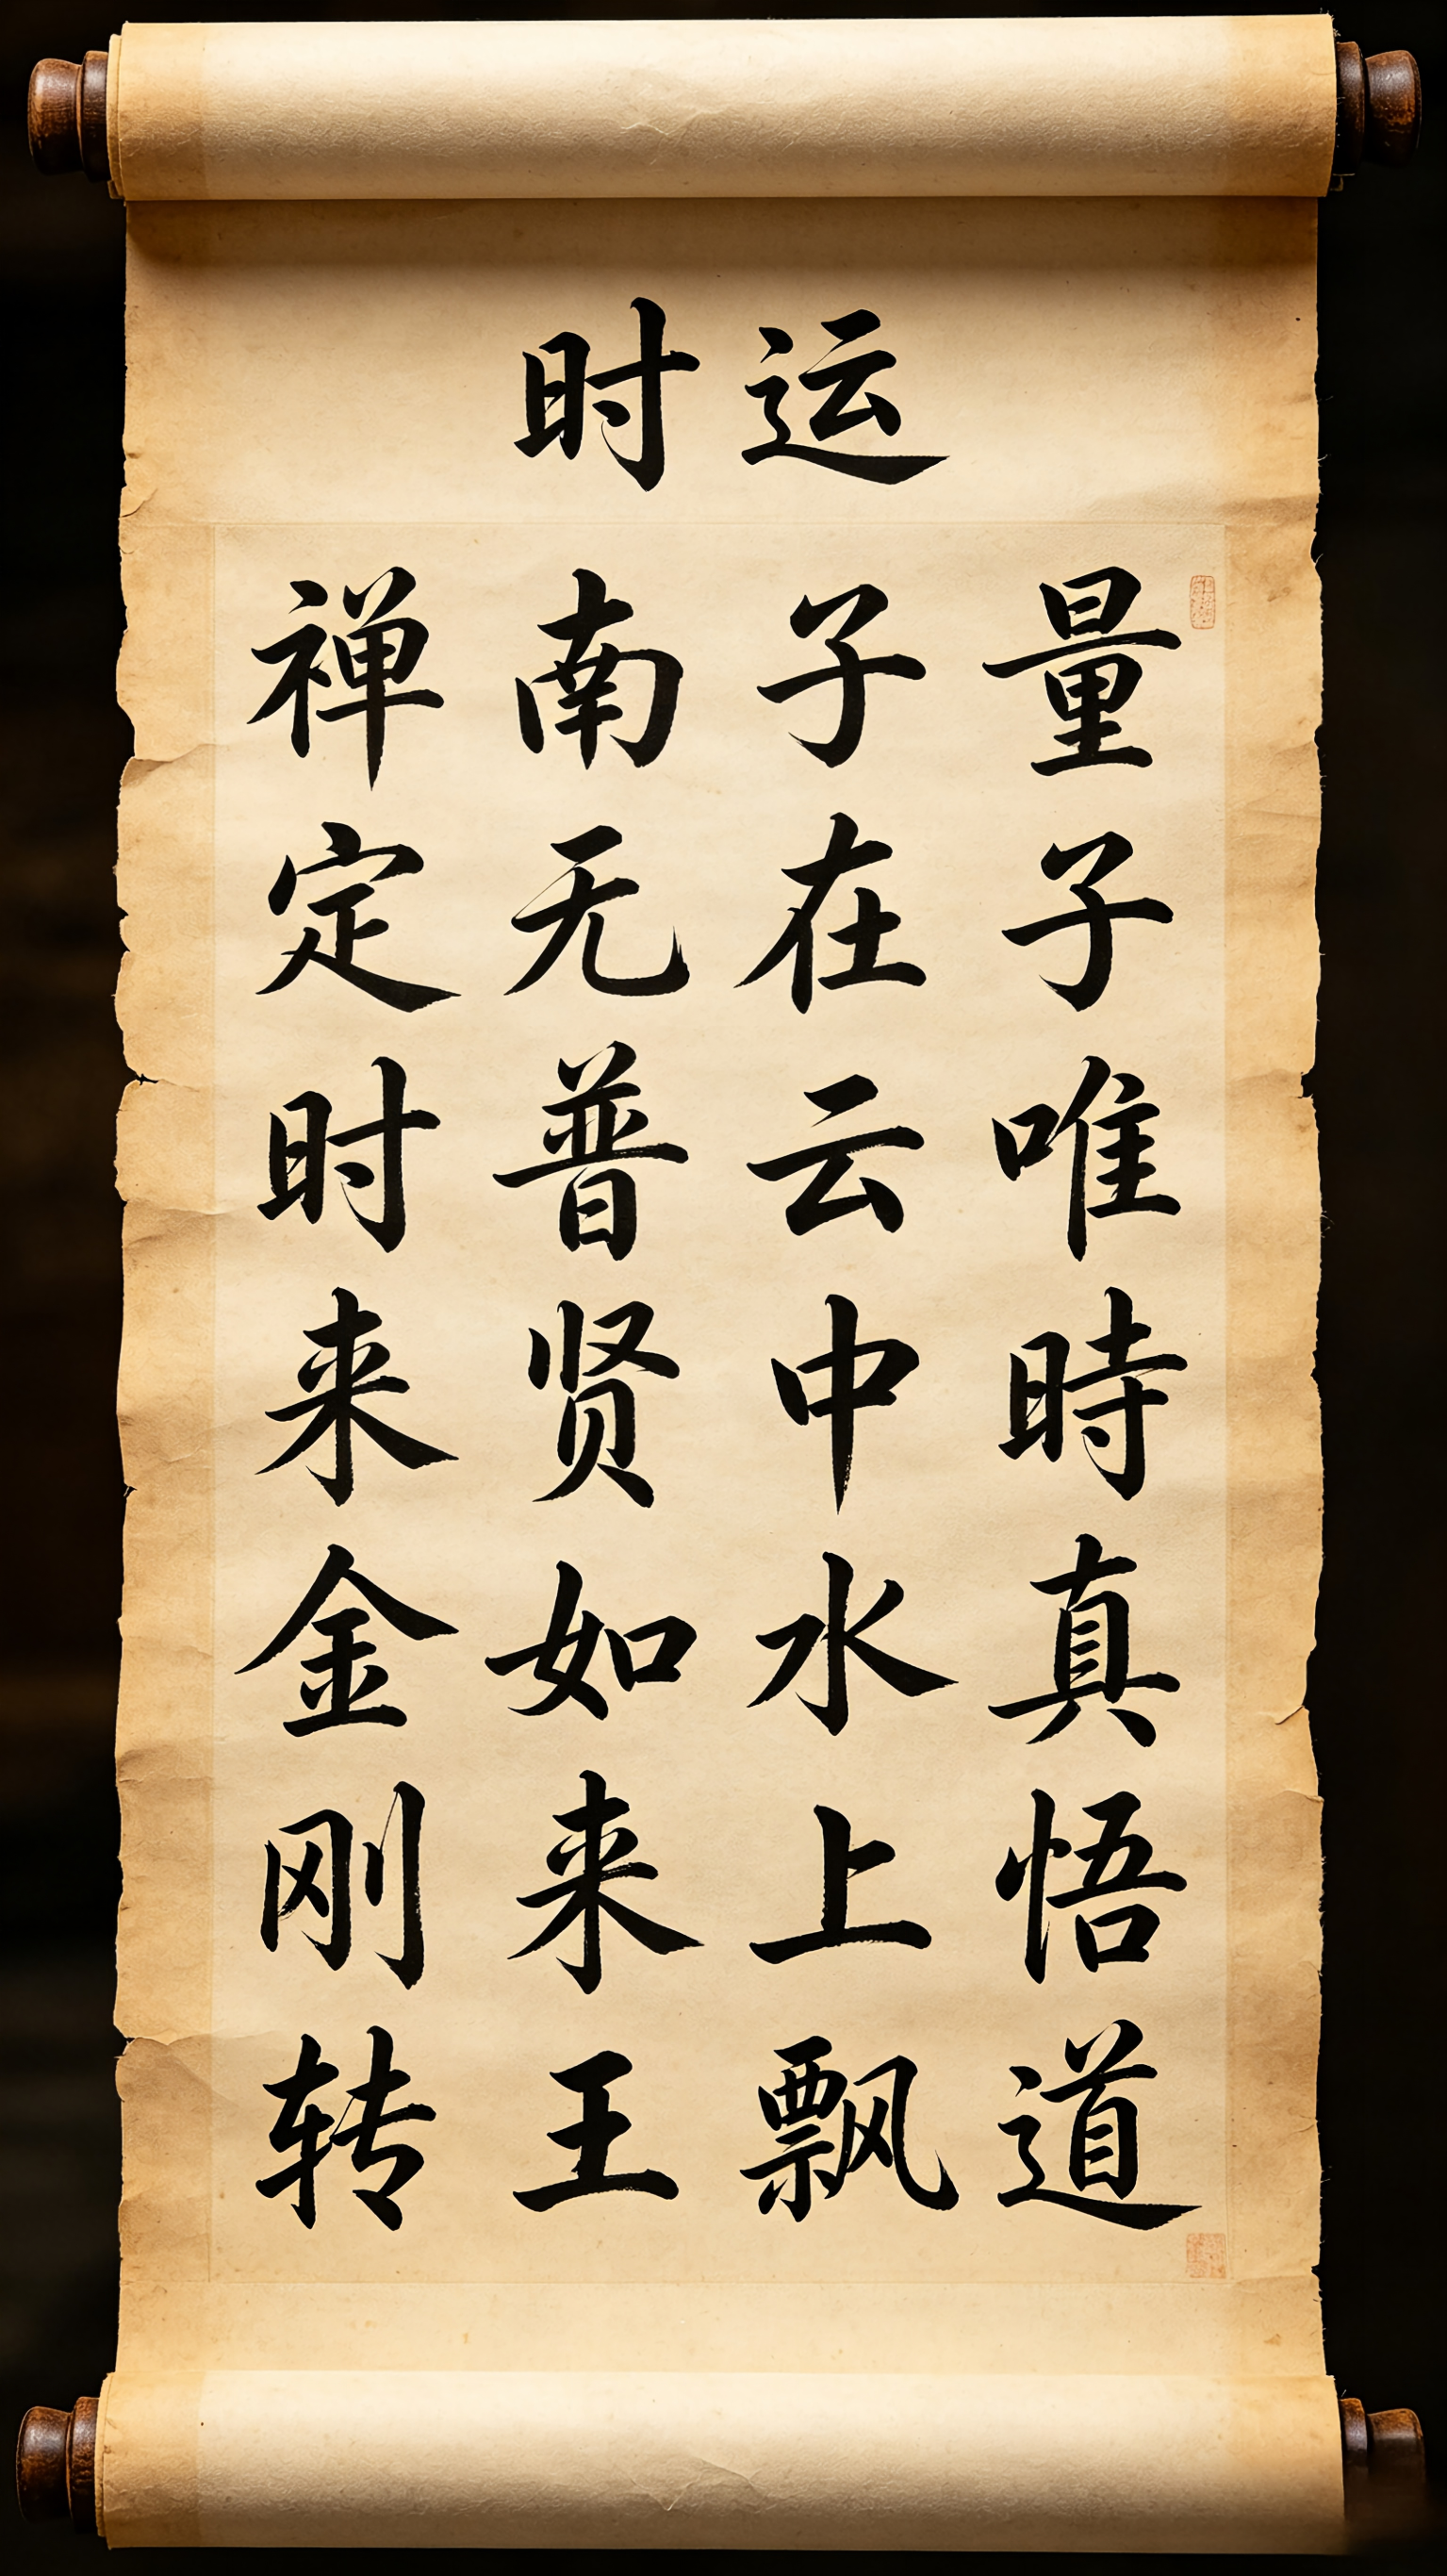 时运
量子唯時真悟道
子在云中水上飘
南无普贤如来王
禅定时来金刚转